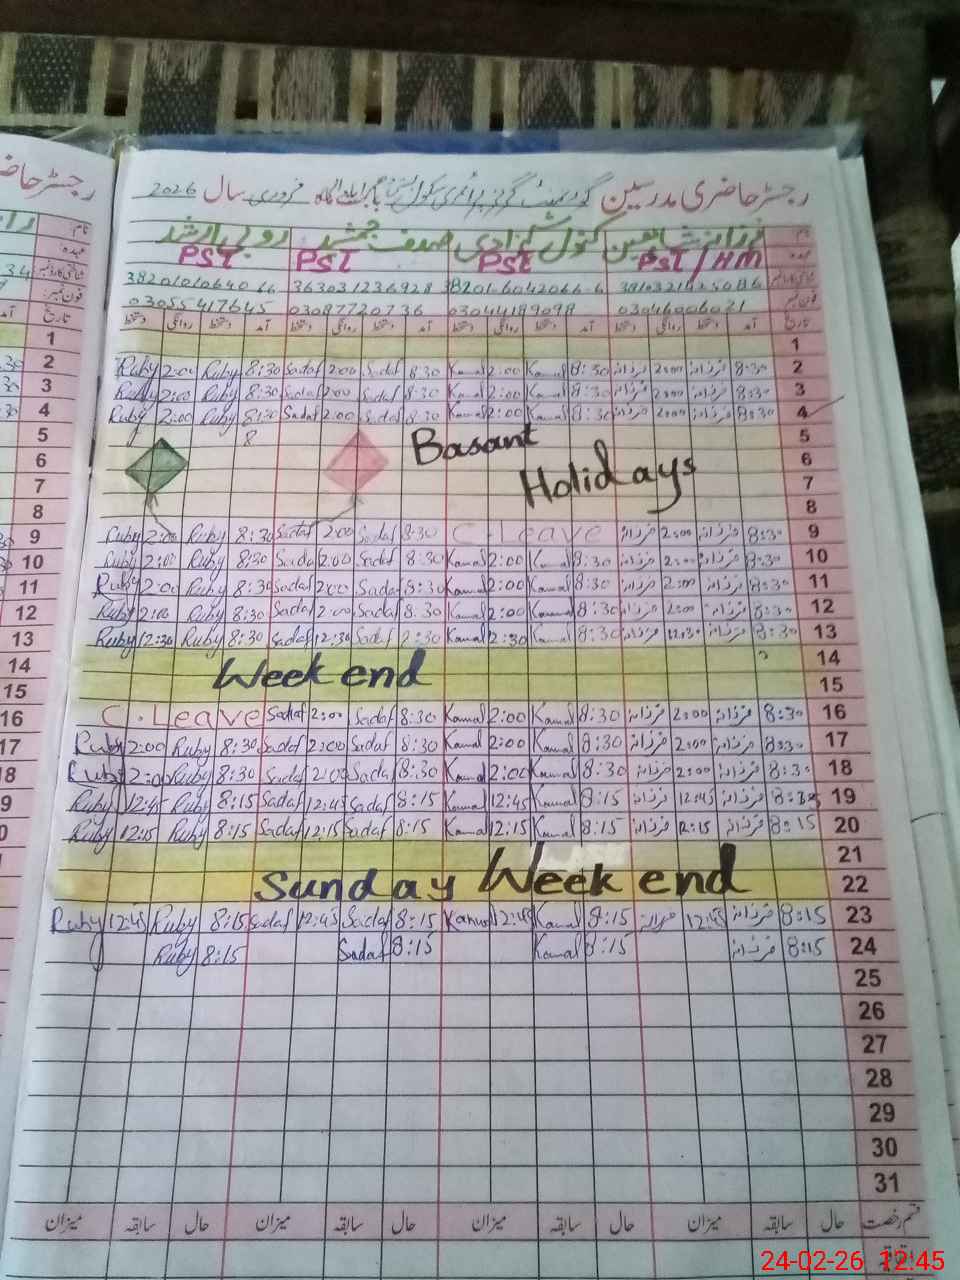 رجسٹر حاضری مدرسین گورنمنٹ گرلز پرائمری سکول ماہ فروری سال 2026
نام فرزانہ شاہین کنول شہزادی صدف جمشید روبی ارشد
عہدہ PST/HM PST PST PST
شناختی کارڈ نمبر 36303123692 8 38201010640
فون نمبر 03046006021 03044189098 03087720736 03055417645
تاریخ آمد دستخط روانگی دستخط آمد دستخط روانگی دستخط آمد دستخط روانگی دستخط آمد دستخط روانگی دستخط
1
2 8:30 فرزانہ 2:00 فرزانہ 8:30 Kanwal 2:00 Kanwal 8:30 Sadaf 2:00 Sadaf 8:30 Ruby 2:00 Ruby
3 8:30 فرزانہ 2:00 فرزانہ 8:30 Kanwal 2:00 Kanwal 8:30 Sadaf 2:00 Sadaf 8:30 Ruby 2:00 Ruby
4 8:30 فرزانہ 2:00 فرزانہ 8:30 Kanwal 2:00 Kanwal 8:30 Sadaf 2:00 Sadaf 8:30 Ruby 2:00 Ruby
5 Basant 8
6
7 Holidays
8
9 8:30 فرزانہ 2:00 فرزانہ C.Leave 8:30 Sadaf 2:00 Sadaf 8:30 Ruby 2:00 Ruby
10 8:30 فرزانہ 2:00 فرزانہ 8:30 Kanwal 2:00 Kanwal 8:30 Sadaf 2:00 Sadaf 8:30 Ruby 2:00 Ruby
11 8:30 فرزانہ 2:00 فرزانہ 8:30 Kanwal 2:00 Kanwal 8:30 Sadaf 2:00 Sadaf 8:30 Ruby 2:00 Ruby
12 8:30 فرزانہ 2:00 فرزانہ 8:30 Kanwal 2:00 Kanwal 8:30 Sadaf 2:00 Sadaf 8:30 Ruby 2:00 Ruby
13 8:30 فرزانہ 12:30 فرزانہ 8:30 Kanwal 2:30 Kanwal 2:30 Sadaf 12:30 Sadaf 8:30 Ruby 12:30 Ruby
14 Week end
15
16 8:30 فرزانہ 2:00 فرزانہ 8:30 Kanwal 2:00 Kanwal 8:30 Sadaf 2:00 Sadaf C.Leave
17 8:30 فرزانہ 2:00 فرزانہ 8:30 Kanwal 2:00 Kanwal 8:30 Sadaf 2:00 Sadaf 8:30 Ruby 2:00 Ruby
18 8:30 فرزانہ 2:00 فرزانہ 8:30 Kanwal 2:00 Kanwal 8:30 Sadaf 2:00 Sadaf 8:30 Ruby 2:00 Ruby
19 فرزانہ 12:45 فرزانہ 8:15 Kanwal 12:45 Kanwal 8:15 Sadaf 12:45 Sadaf 8:15 Ruby 12:45 Ruby
20 8:15 فرزانہ 12:15 فرزانہ 8:15 Kanwal 12:15 Kanwal 8:15 Sadaf 12:15 Sadaf 8:15 Ruby 12:15 Ruby
21
22 Sunday Week end
23 8:15 فرزانہ 12:45 فرزانہ 8:15 Kanwal 12:45 Kanwal 8:15 Sadaf 12:45 Sadaf 8:15 Ruby 12:45 Ruby
24 8:15 فرزانہ 8:15 Kanwal 8:15 Sadaf 8:15 Ruby
25
26
27
28
29
30
31
قسم رخصت حال سابقہ میزان حال سابقہ میزان حال سابقہ میزان حال سابقہ میزان
اتفاقیہ
24-02-26 12:45